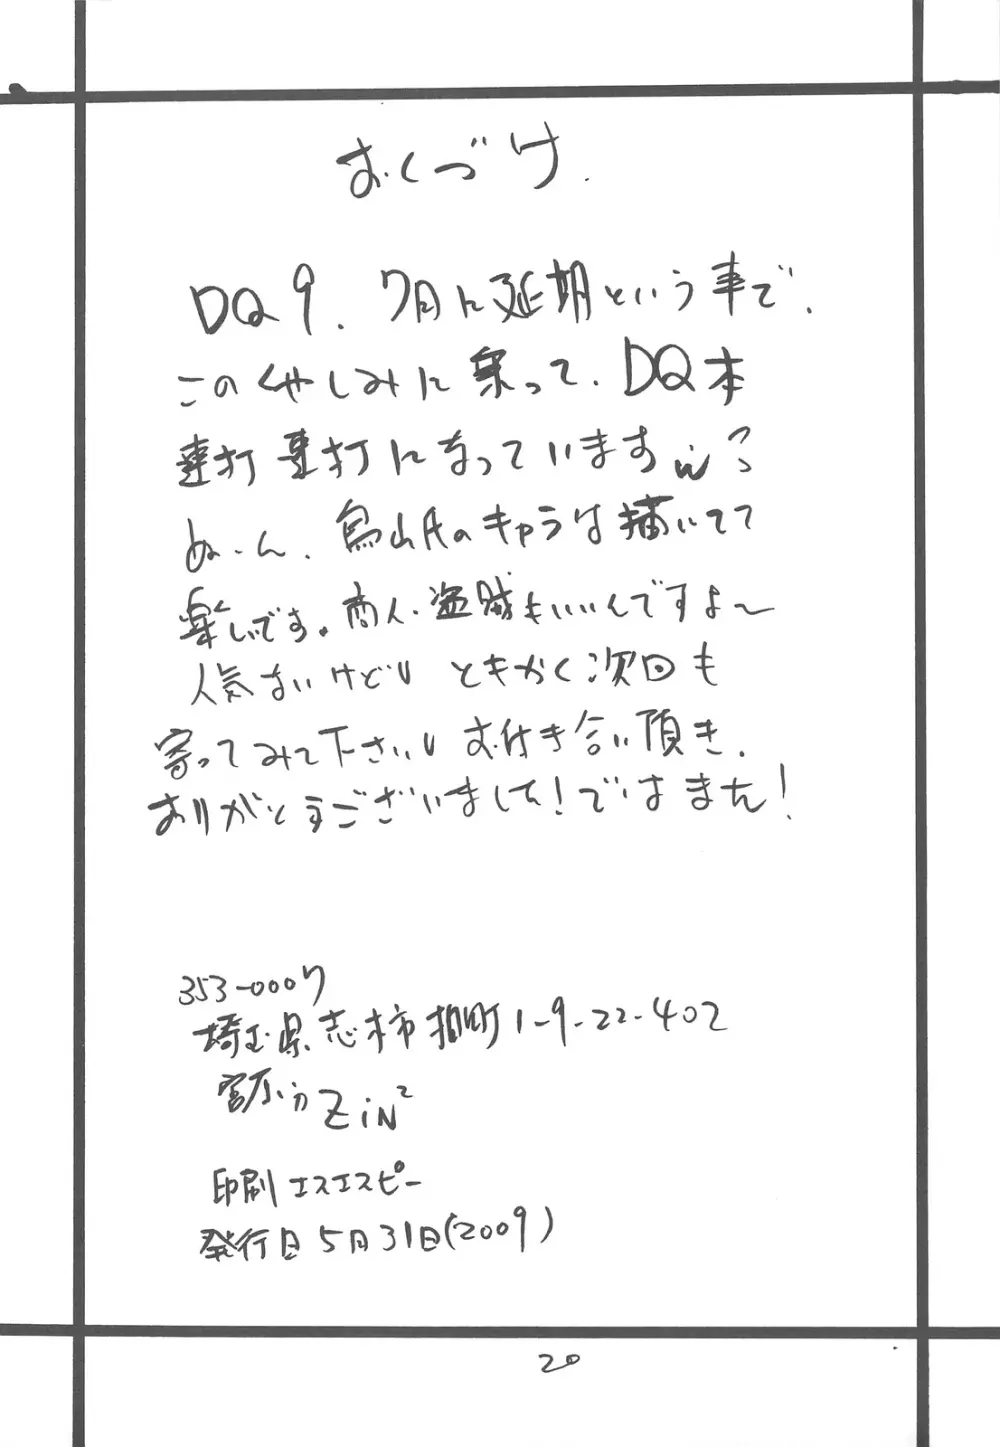 おくづけ.
DQ9. 7月に延期という事で.
このくやしみに乗って. DQ本
連打連打になっていますw?
ぬーん. 鳥山氏のキャラは描いてて
楽しいです。商人・盗賊もいいんですよ〜
人気ないけどし ともかく次回も
寄ってみて下さいし お付き合い頂き.
ありがとうございました!ではまた!
353-0007
埼玉県志木市柏町1-9-22-402
ZiN²
印刷 エスエスピー
発行日 5月31日(2009)
20